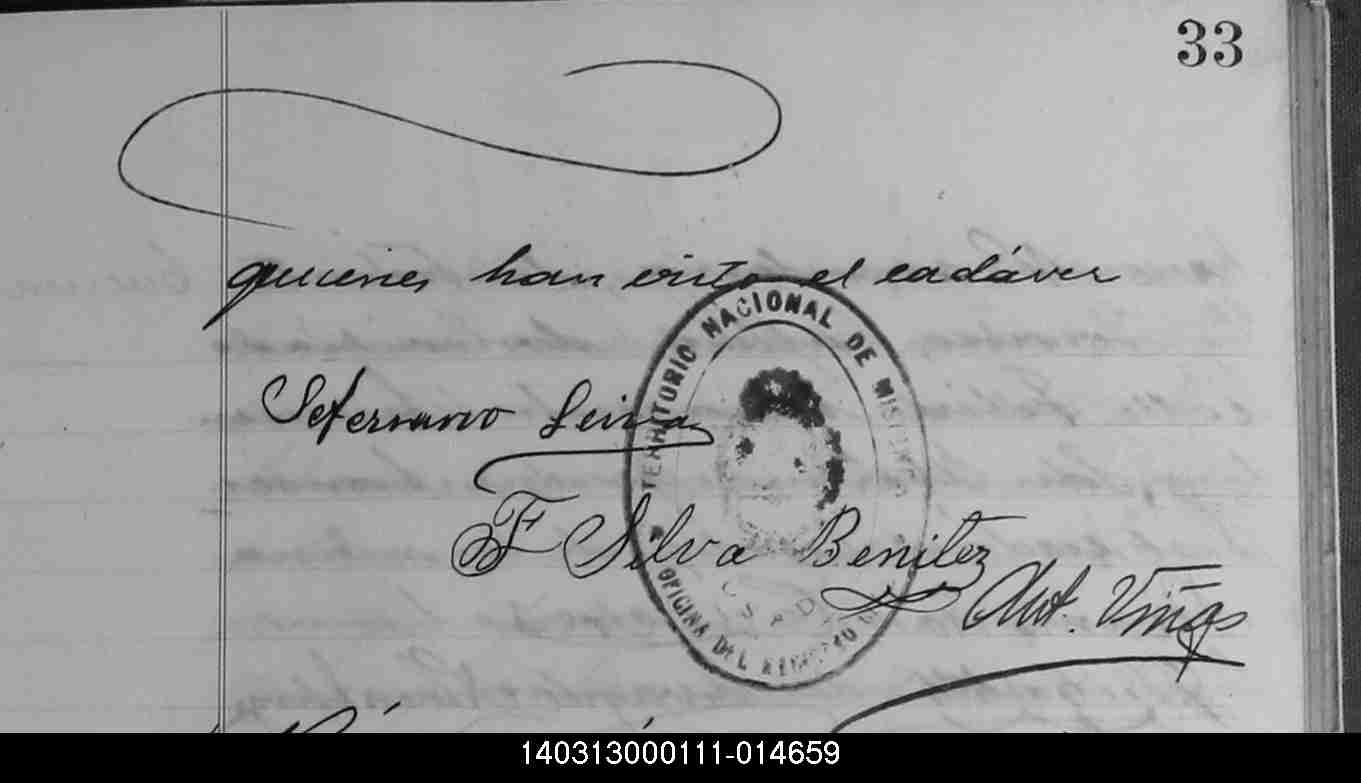 33
quienes han visto el cadáver
TERRITORIO NACIONAL DE MISIONES
Seferiano Leiva
F Silva Benitez
Ant. Viñas
OFICINA DEL REGISTRO
140313000111-014659